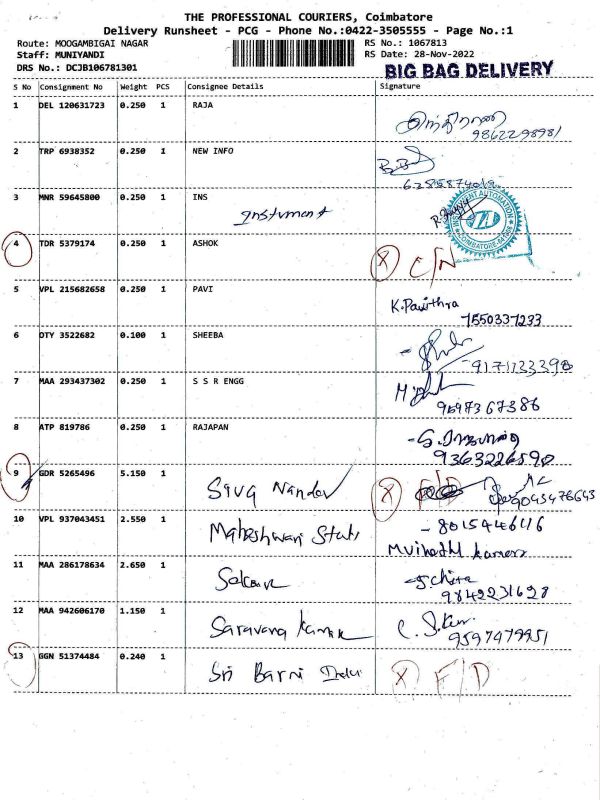 THE PROFESSIONAL COURIERS, Coimbatore
Delivery Runsheet - PCG - Phone No.:0422-3505555 - Page No.:1
Route: MOOGAMBIGAI NAGAR
RS No.: 1067813
Staff: MUNIYANDI
RS Date: 28-Nov-2022
DRS No.: DCJB106781301
BIG BAG DELIVERY
S No Consignment No Weight PCS Consignee Details Signature
1 DEL 120631723 0.250 1 RAJA
9862298981
2 TRP 6938352 0.250 1 NEW INFO
3 MNR 59645800 0.250 1 INS
Instrument
4 TDR 5379174 0.250 1 ASHOK
X C/N
5 VPL 215682658 0.250 1 PAVI
K.Pavithra
7550337233
6 DTY 3522682 0.100 1 SHEEBA
9171133390
7 MAA 293437302 0.250 1 S S R ENGG
9597367386
8 ATP 819786 0.250 1 RAJAPAN
9363226590
9 GDR 5265496 5.150 1
X
10 VPL 937043451 2.550 1 Maheshwari
- 8015446116
11 MAA 286178634 2.650 1
9842231628
12 MAA 942606170 1.150 1 Saravana Kumar
9597479951
13 GGN 51374484 0.240 1 Sri Barni
X F/D